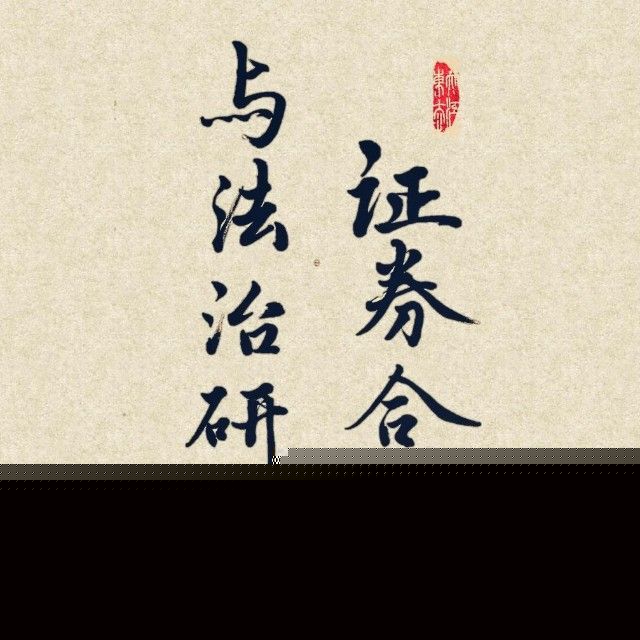 证券合
与法治研